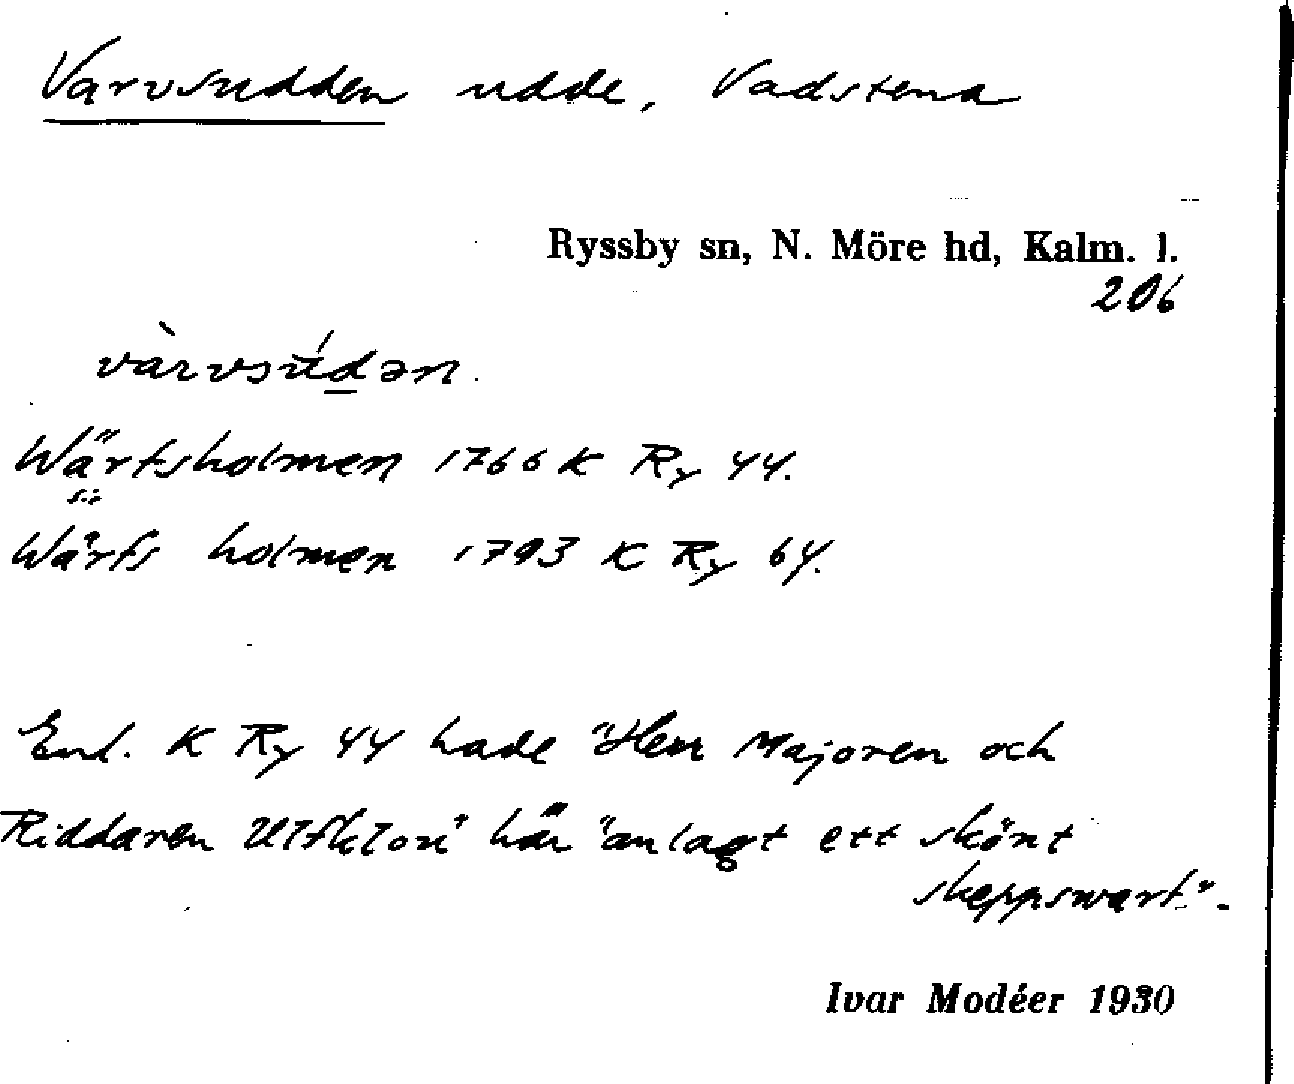 Varvsudden udde, Vadstena
Ryssby sn, N. Möre hd, Kalm. l.
206
vàrvsúdən.
Wärfsholmen 1766 K Ry 44.
Wärfs holmen 1793 K Ry 64.
Enl. K Ry 44 hade "Herr Majoren och
Riddaren Ulfklou" här "anlagt ett skönt
skeppswarf".
Ivar Modéer 1930